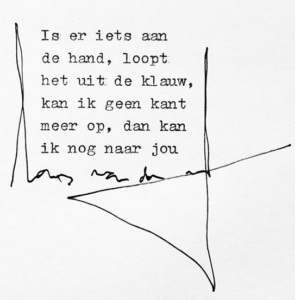 Is er iets aan
de hand, loopt
het uit de klauw,
kan ik geen kant
meer op, dan kan
ik nog naar jou